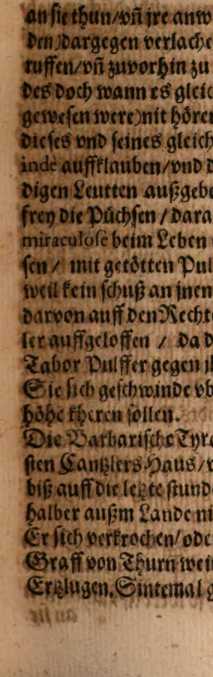 an sie thun/vñ jre anw
den)dargegen verlache
ruffen/vñ zuvorhin zu
des doch wann es gleic
gewesen were)nit hören
dieses vnd seines gleich
inde auffklauben/vnd d
digen Leutten außgeb
frey die Püchsen / dara
miraculose beim Leben
sen / mit getötten Pul
weil kein schuß an jnen
darvon auff den Recht
ler auffgeloffen / da d
Tabor Pulffer gegen j
Sie sich geschwinde vb
höhe kheren sollen.
Die Barbarische Tyra
sten Cantzlers Haus/v
biß auff die letzte stund
halber außm Lande ni
Er sich verkrochen/ode
Graff von Thurn wei
Ertzlugen. Sintemal g